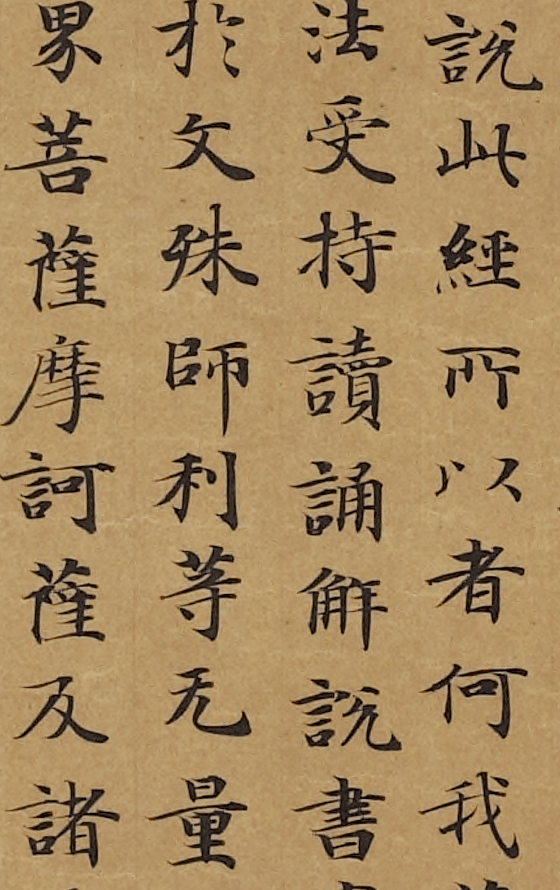 說此經所以者何我
法受持讀誦解說書
於文殊師利等无量
界菩薩摩訶薩及諸